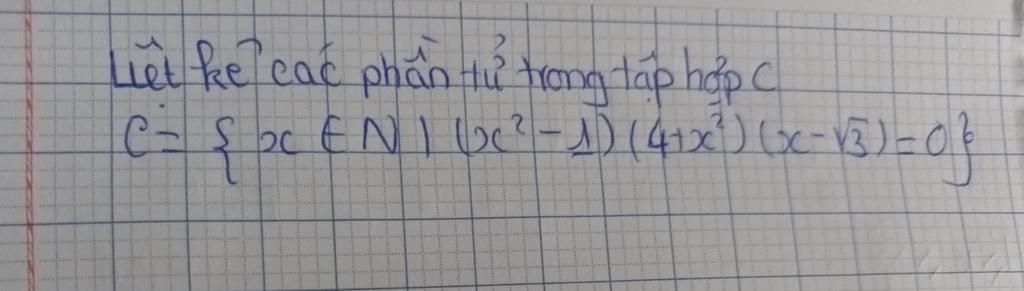 Liệt kê các phần tử trong tập hợp C
C = { x ∈ N | (x² - 1) (4+x²) (x - √3) = 0}